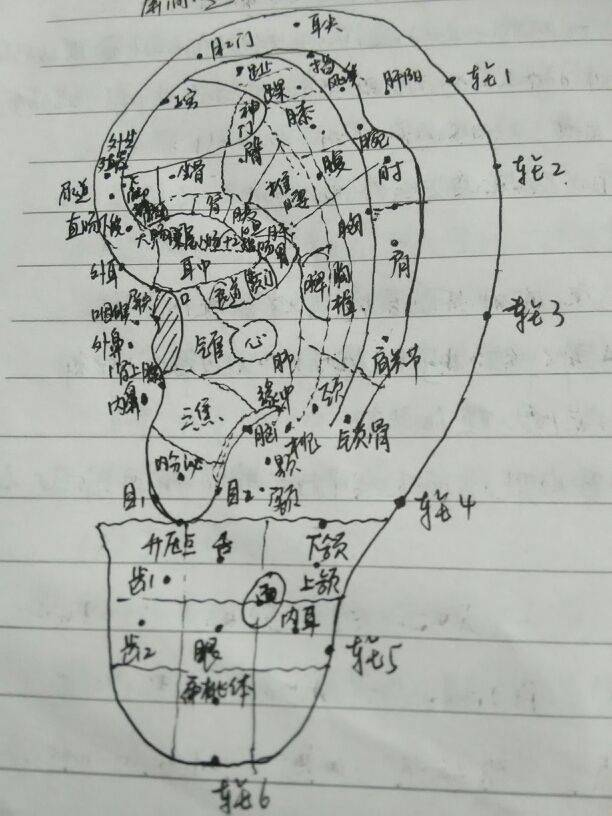 耳尖
肛门
趾
指
肝阳
轮1
踝
子宫
神门
膝
腕
外生殖器
臀
坐骨
腰椎
腹
肘
轮2
尿道
肾
胰胆
直肠下段
大肠
小肠
十二指肠
胃
胸
肩
外耳
耳中
口
食道
贲门
脾
胸椎
咽喉
外鼻
气管
心
肺
肩关节
轮3
肾上腺
内鼻
三焦
缘中
颈
锁骨
脑
枕
内分泌
颞
额
目1
目2
轮4
升压点
舌
下颌
齿1
上颌
面
内耳
齿2
眼
轮5
扁桃体
轮6